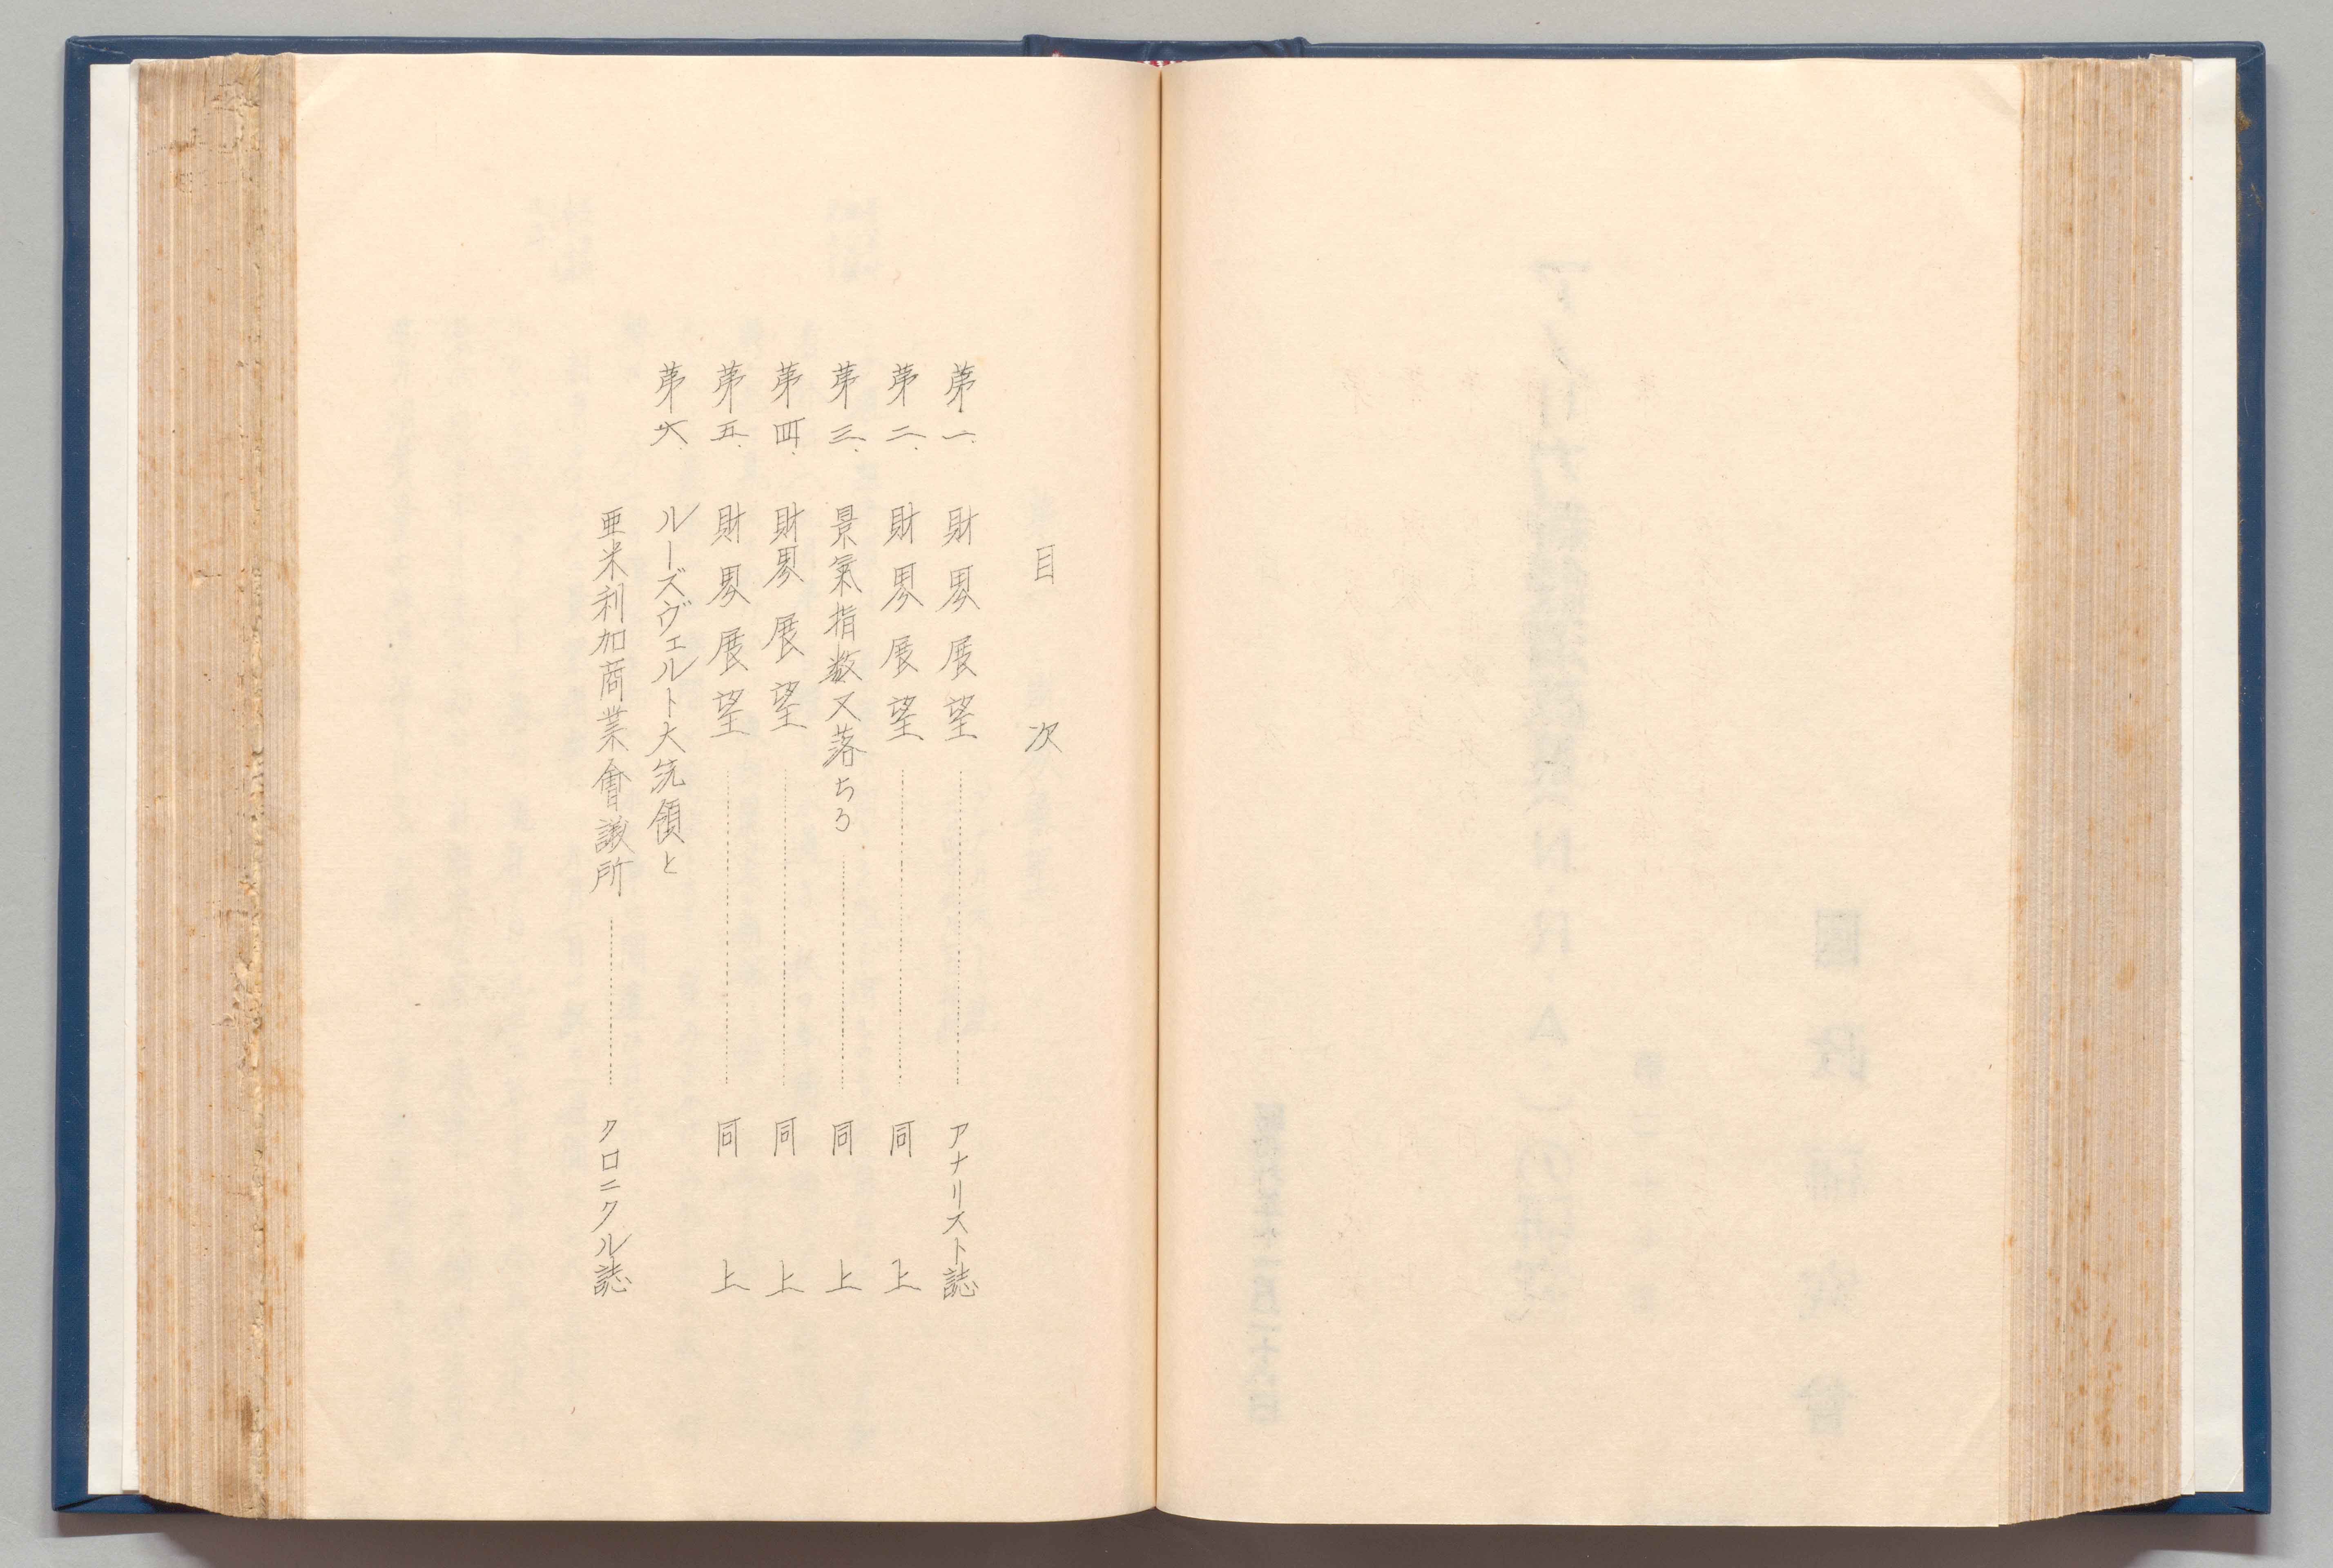 目次
第一、財界展望……アナリスト誌
第二、財界展望……同上
第三、景氣指数又落ちる……同上
第四、財界展望……同上
第五、財界展望……同上
第六、ルーズヴェルト大統領と
亜米利加商業會議所……クロニクル誌